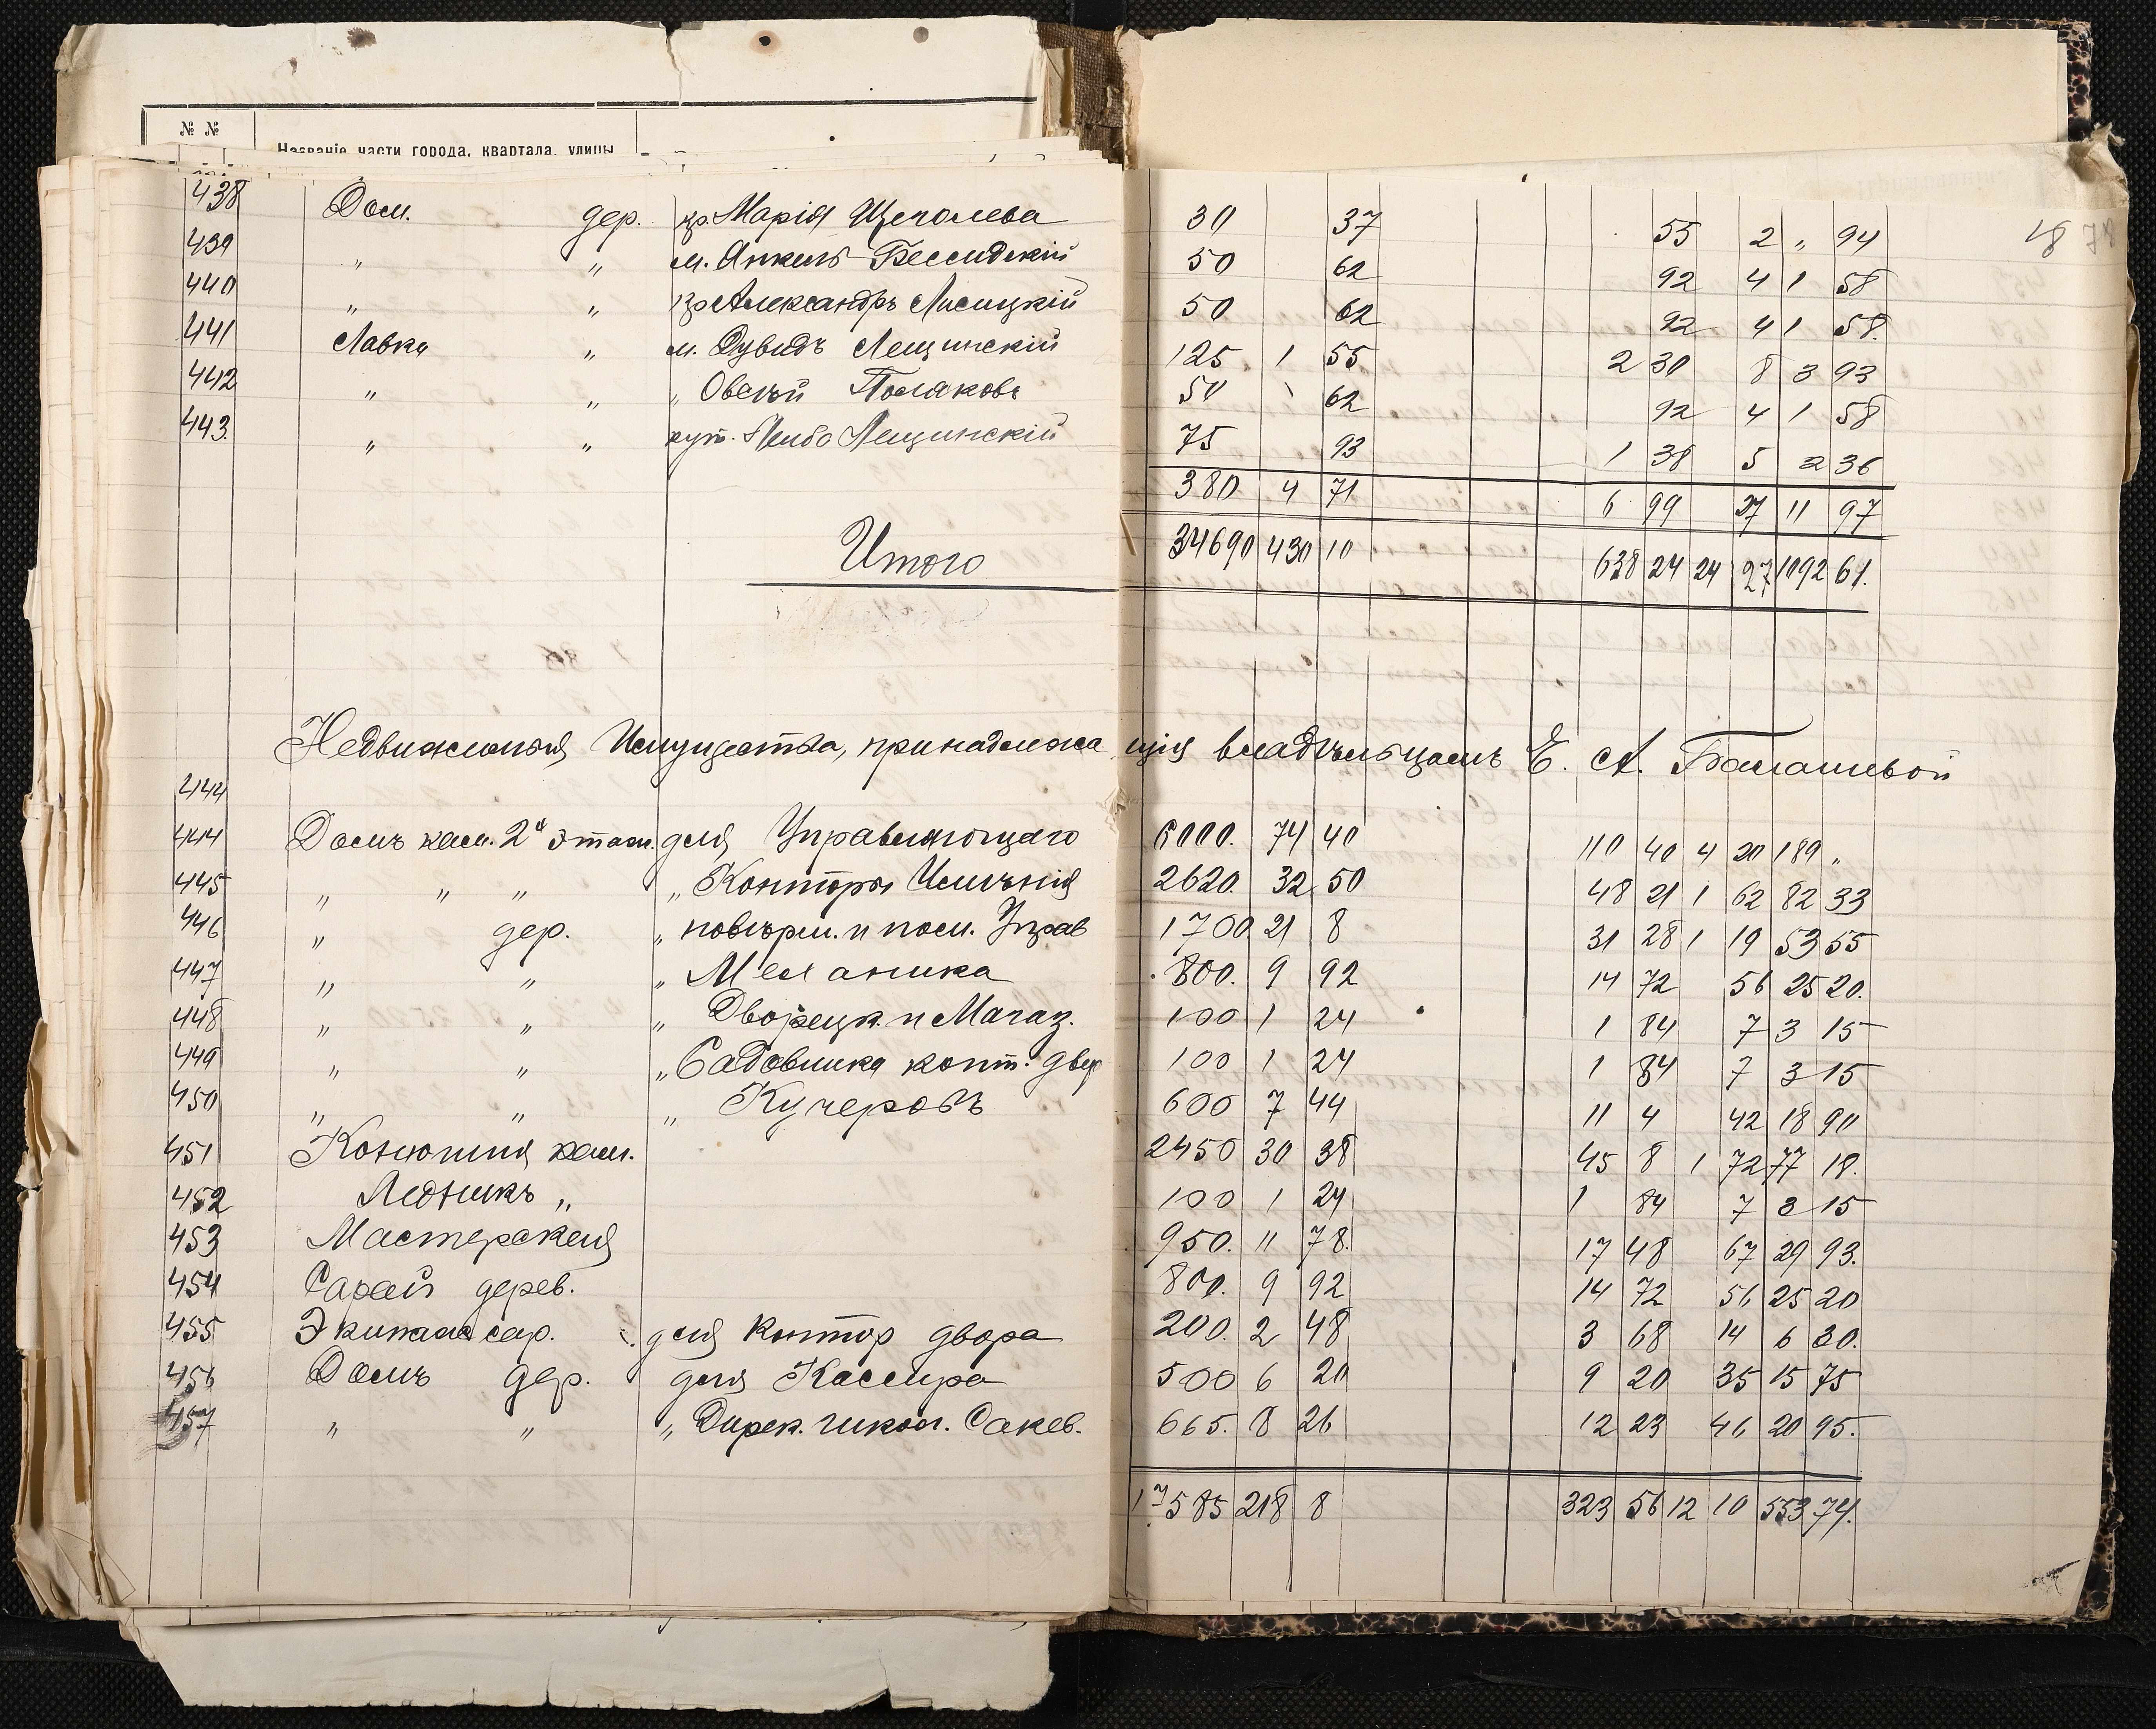 № №
Названіе части города, квартала, улицы
438 Дом. дер. гр. Марія Щеголева 30 37 55 2 „ 94
439 „ „ м. Янкель Бессидскій 50 62 92 4 1 58
440 „ „ гр Александръ Лисицкій 50 62 92 4 1 58.
441 Лавка „ м. Дувидъ Лещинскій 125 1 55 2 30 8 3 93
442 „ „ „ Овсѣй Поляковъ 50 62 92 4 1 58
443. „ „ куп. Лейба Лещинскій 75 93 1 38 5 2 36
380 4 71 6 99 27 11 97
Итого 34690 430 10 638 24 24 27 1092 61.
Недвижимыя Имущества, принадлежащія владѣльцамъ Е. А. Балашевой
444
444 Домъ кам. 2х этаж. для Управляющаго 6000. 74 40 110 40 4 20 189 „
445 „ „ „ „ Конторы Имѣнія 2620. 32 50 48 21 1 62 82 33
446 „ дер. „ повѣрен. и пом. Управ 1700 21 8 31 28 1 19 53 55
447 „ „ „ Механика 800. 9 92 14 72 56 25 20.
448 „ „ „ Дворецк. и Магаз. 100 1 24 1 84 7 3 15
449 „ „ „ Садовника конт. двор 100 1 24 1 84 7 3 15
450 „ „ „ Кучеровъ 600 7 44 11 4 42 18 90
451 Конюшня кам. 2450 30 38 45 8 1 72 77 18.
452 Ледникъ „ 100 1 24 1 84 7 3 15
453 Мастерская 950. 11 78. 17 48 67 29 93.
454 Сарай дерев. 800. 9 92 14 72 56 25 20
455 Экипаж сар. для контор двора 200. 2 48 3 68 14 6 30.
456 Домъ дер. для Кассира 500 6 20 9 20 35 15 75
457 „ „ „ Дирек. школ. 665. 8 26 12 23 46 20 95.
17585 218 8 323 56 12 10 553 74.